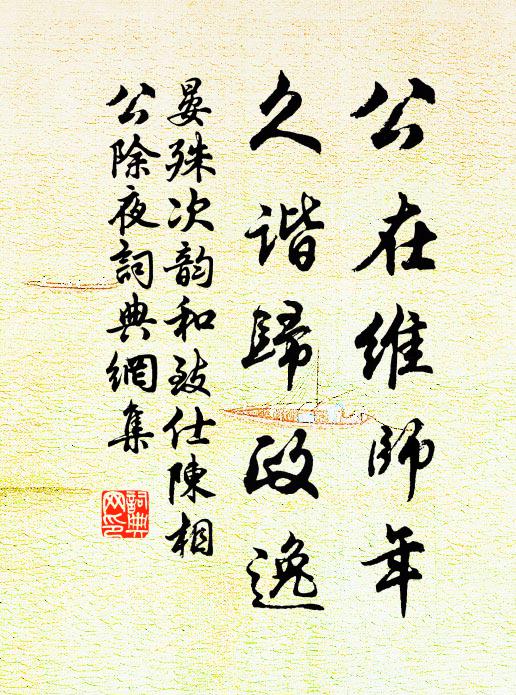 公在维師年
久谐歸政逸
晏殊次韵和致仕陳相
公除夜詞典網集
詞典
网印